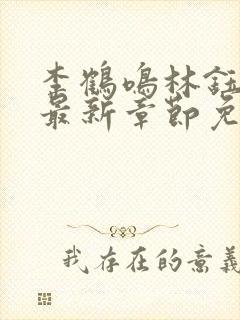 李鹤鸣林钰
最新章节免
我存在的意义